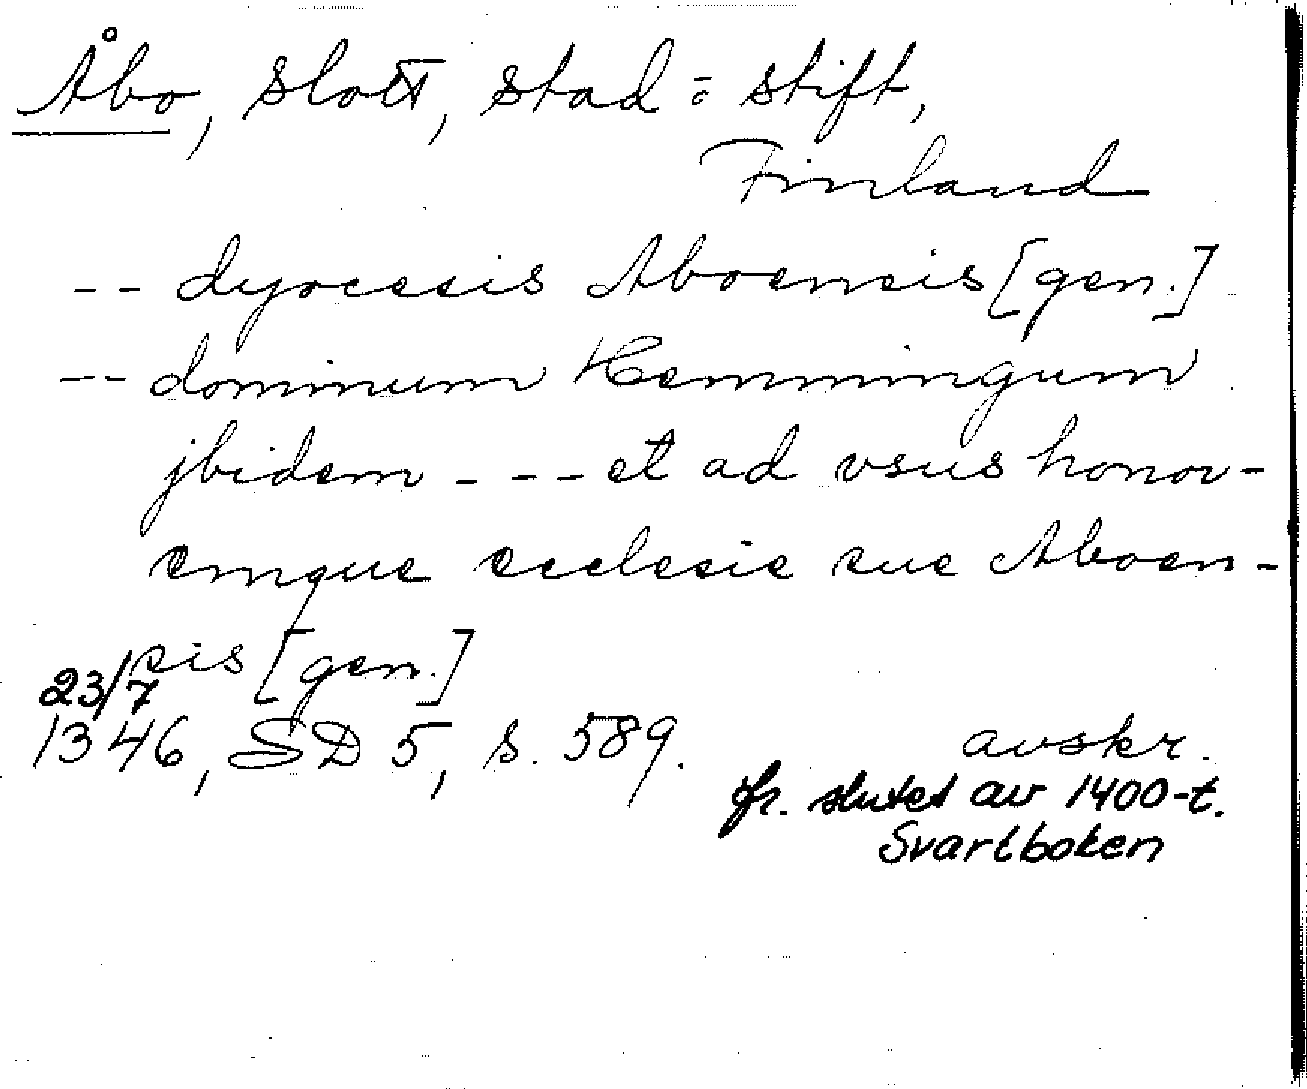 Åbo, slott, stad = stift,
Finland
-- dyocesis Aboensis [gen.]
-- dominum Hemmingum
jbidem - - - et ad vsus honor-
emque ecclesie sue Aboen-
sis [gen.]
23/7
1346, SD 5, s. 589. avskr.
fr. slutet av 1400-t.
Svartboken